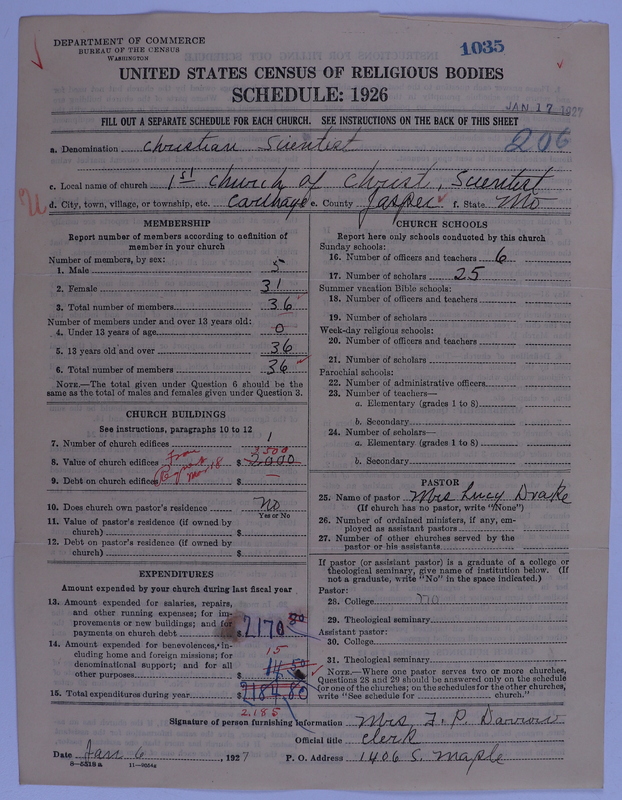 DEPARTMENT OF COMMERCE
BUREAU OF THE CENSUS
WASHINGTON
1035
UNITED STATES CENSUS OF RELIGIOUS BODIES
SCHEDULE: 1926
JAN 17 1927
FILL OUT A SEPARATE SCHEDULE FOR EACH CHURCH. SEE INSTRUCTIONS ON THE BACK OF THIS SHEET
206
a. Denomination Christian Scientist
c. Local name of church 1st Church of Christ, Scientist
d. City, town, village, or township, etc. Carthage e. County Jasper f. State Mo
MEMBERSHIP
Report number of members according to definition of
member in your church
Number of members, by sex:
1. Male 5
2. Female 31
3. Total number of members 36
Number of members under and over 13 years old:
4. Under 13 years of age 0
5. 13 years old and over 36
6. Total number of members 36
NOTE.—The total given under Question 6 should be
same as the total of males and females given under Question 3.
CHURCH BUILDINGS
See instructions, paragraphs 10 to 12
7. Number of church edifices 1
2500
8. Value of church edifices $ 2000
9. Debt on church edifices $ —
10. Does church own pastor's residence No
Yes or No
11. Value of pastor's residence (if owned by
church) $
12. Debt on pastor's residence (if owned by
church) $
EXPENDITURES
Amount expended by your church during last fiscal year
13. Amount expended for salaries, repairs,
and other running expenses; for im-
provements or new buildings; and for
payments on church debt $ 2170 80
14. Amount expended for benevolences, in-
cluding home and foreign missions; for
denominational support; and for all
other purposes $ 14.80
15
15. Total expenditures during year $ 2184.80
2,185
CHURCH SCHOOLS
Report here only schools conducted by this church
Sunday schools:
16. Number of officers and teachers 6
17. Number of scholars 25
Summer vacation Bible schools:
18. Number of officers and teachers
19. Number of scholars
Week-day religious schools:
20. Number of officers and teachers
21. Number of scholars
Parochial schools:
22. Number of administrative officers
23. Number of teachers—
a. Elementary (grades 1 to 8)
b. Secondary
24. Number of scholars—
a. Elementary (grades 1 to 8)
b. Secondary
PASTOR
25. Name of pastor Mrs Lucy Drake
(If church has no pastor, write "None")
26. Number of ordained ministers, if any, em-
ployed as assistant pastors
27. Number of other churches served by the
pastor or his assistants
If pastor (or assistant pastor) is a graduate of a college or
theological seminary, give name of institution below. (If
not a graduate, write "No" in the space indicated.)
Pastor:
28. College no
29. Theological seminary
Assistant pastor:
30. College
31. Theological seminary
NOTE.—Where one pastor serves two or more churches,
Questions 28 and 29 should be answered only on the schedule
for one of the churches; on the schedules for the other churches,
write "See schedule for church."
Signature of person furnishing information Mrs F. P. Darrow
Official title Clerk
Date Jan 6, 1927 P. O. Address 1406 S. Maple
8—5518a